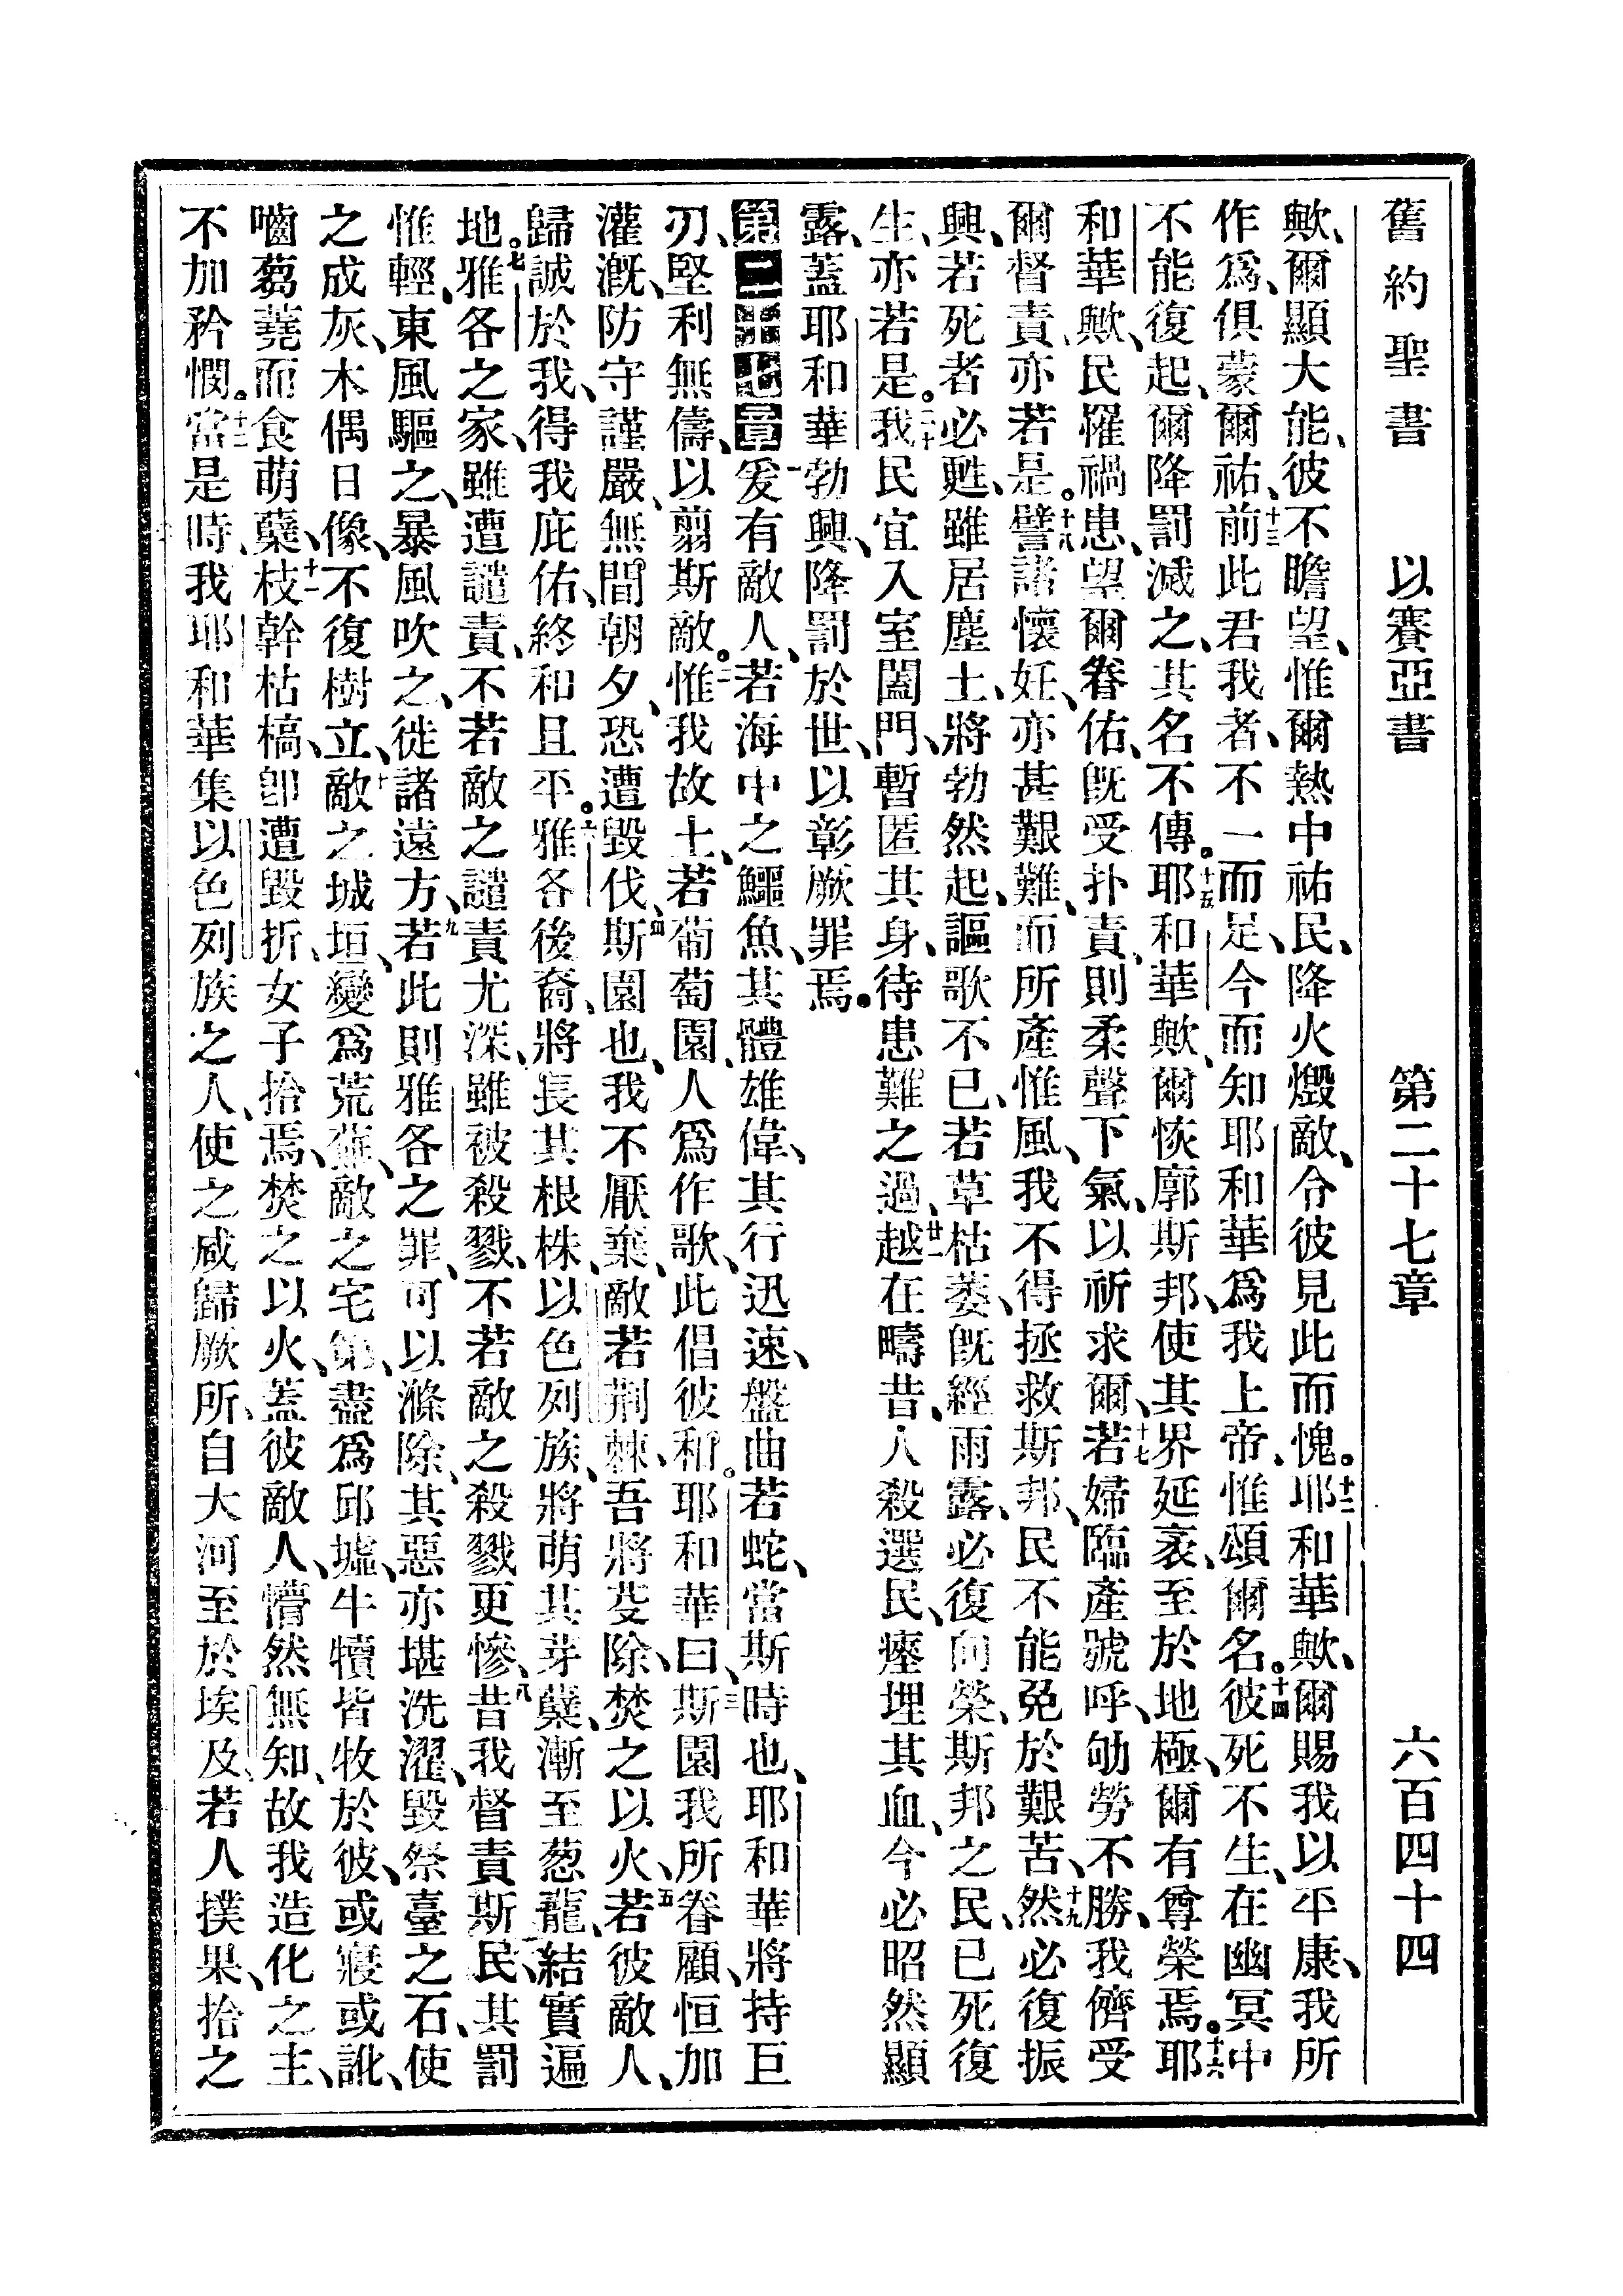 舊約聖書 以賽亞書 第二十七章 六百四十四
歟、爾顯大能、彼不瞻望、惟爾熱中祐民、降火燬敵、令彼見此而愧。十二耶和華歟、爾賜我以平康、我所
作爲、俱蒙爾祐、十三前此君我者、不一而足、今而知耶和華爲我上帝、惟頌爾名。十四彼死不生、在幽冥中
不能復起、爾降罰滅之、其名不傳。十五耶和華歟、爾恢廓斯邦、使其界延袤、至於地極、爾有尊榮焉。十六耶
和華歟、民罹禍患、望爾眷佑、旣受扑責、則柔聲下氣、以祈求爾、十七若婦臨產號呼、劬勞不勝、我儕受
爾督責、亦若是。十八譬諸懷妊、亦甚艱難、而所產惟風、我不得拯救斯邦、民不能免於艱苦、十九然必復振
興、若死者必甦、雖居塵土、將勃然起、謳歌不已、若草枯萎、旣經雨露、必復向榮、斯邦之民、已死復
生、亦若是。二十我民宜入室闔門、暫匿其身、待患難之過、廿一越在疇昔、人殺選民、瘞埋其血、今必昭然顯
露、蓋耶和華勃興、降罰於世、以彰厥罪焉。
第二十七章 一爰有敵人、若海中之鱷魚、其體雄偉、其行迅速、盤曲若蛇、當斯時也、耶和華將持巨
刃、堅利無儔、以翦斯敵。二惟我故土、若葡萄園、人爲作歌、此倡彼和。耶和華曰、三斯園我所眷顧、恒加
灌漑、防守謹嚴、無間朝夕、恐遭毀伐、四斯園也、我不厭棄、敵若荆棘、吾將芟除、焚之以火、五若彼敵人、
歸誠於我、得我庇佑、終和且平。六雅各後裔、將長其根株、以色列族、將萌其芽蘖、漸至葱蘢、結實遍
地。七雅各之家、雖遭譴責、不若敵之譴責尤深、雖被殺戮、不若敵之殺戮更慘、八昔我督責斯民、其罰
惟輕、東風驅之、暴風吹之、徙諸遠方、九若此則雅各之罪、可以滌除、其惡亦堪洗濯、毀祭臺之石、使
之成灰、木偶日像、不復樹立、十敵之城垣、變爲荒蕪、敵之宅第、盡爲邱墟、牛犢皆牧於彼、或寢或訛、
嚙蒭蕘而食萌蘖、十一枝幹枯槁、卽遭毀折、女子拾焉、焚之以火、蓋彼敵人、懵然無知、故我造化之主、
不加矜憫。十二當是時、我耶和華集以色列族之人、使之咸歸厥所、自大河至於埃及、若人撲果、拾之